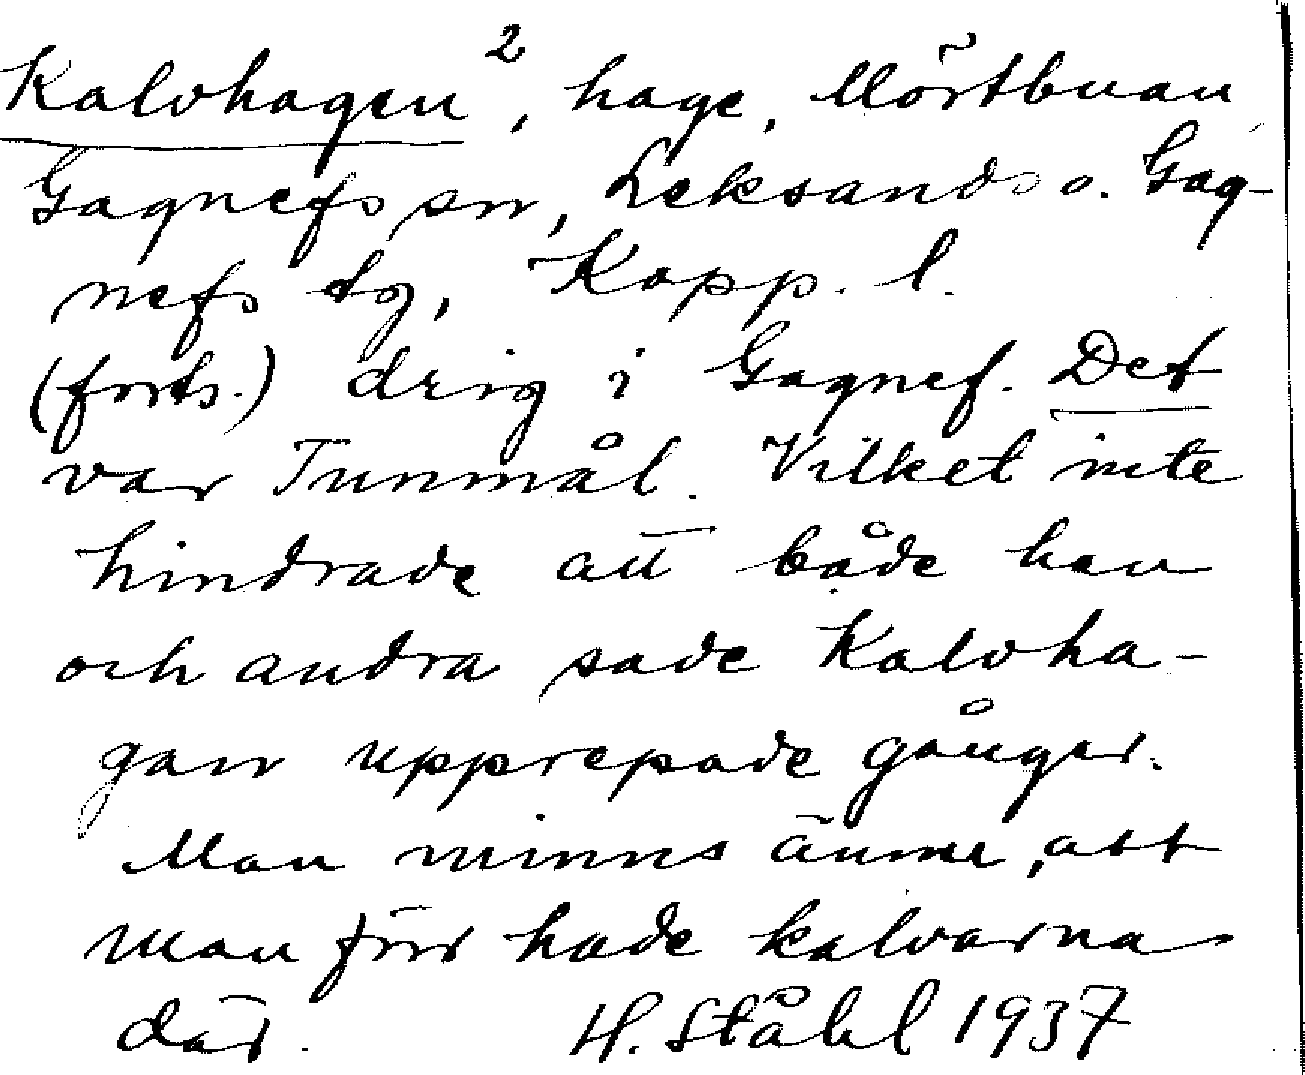 Kalvhagen ², hage, Mörtbuan,
Gagnefs sn, Leksands o. Gag-
nefs tg, Kopp. l.
(forts.) drig i Gagnef. Det
var Tunmål. Vilket inte
hindrade att både han
och andra sade Kalvha-
gan upprepade gånger.
Man minns ännu, att
man förr hade kalvarna
där. H. Ståhl 1937